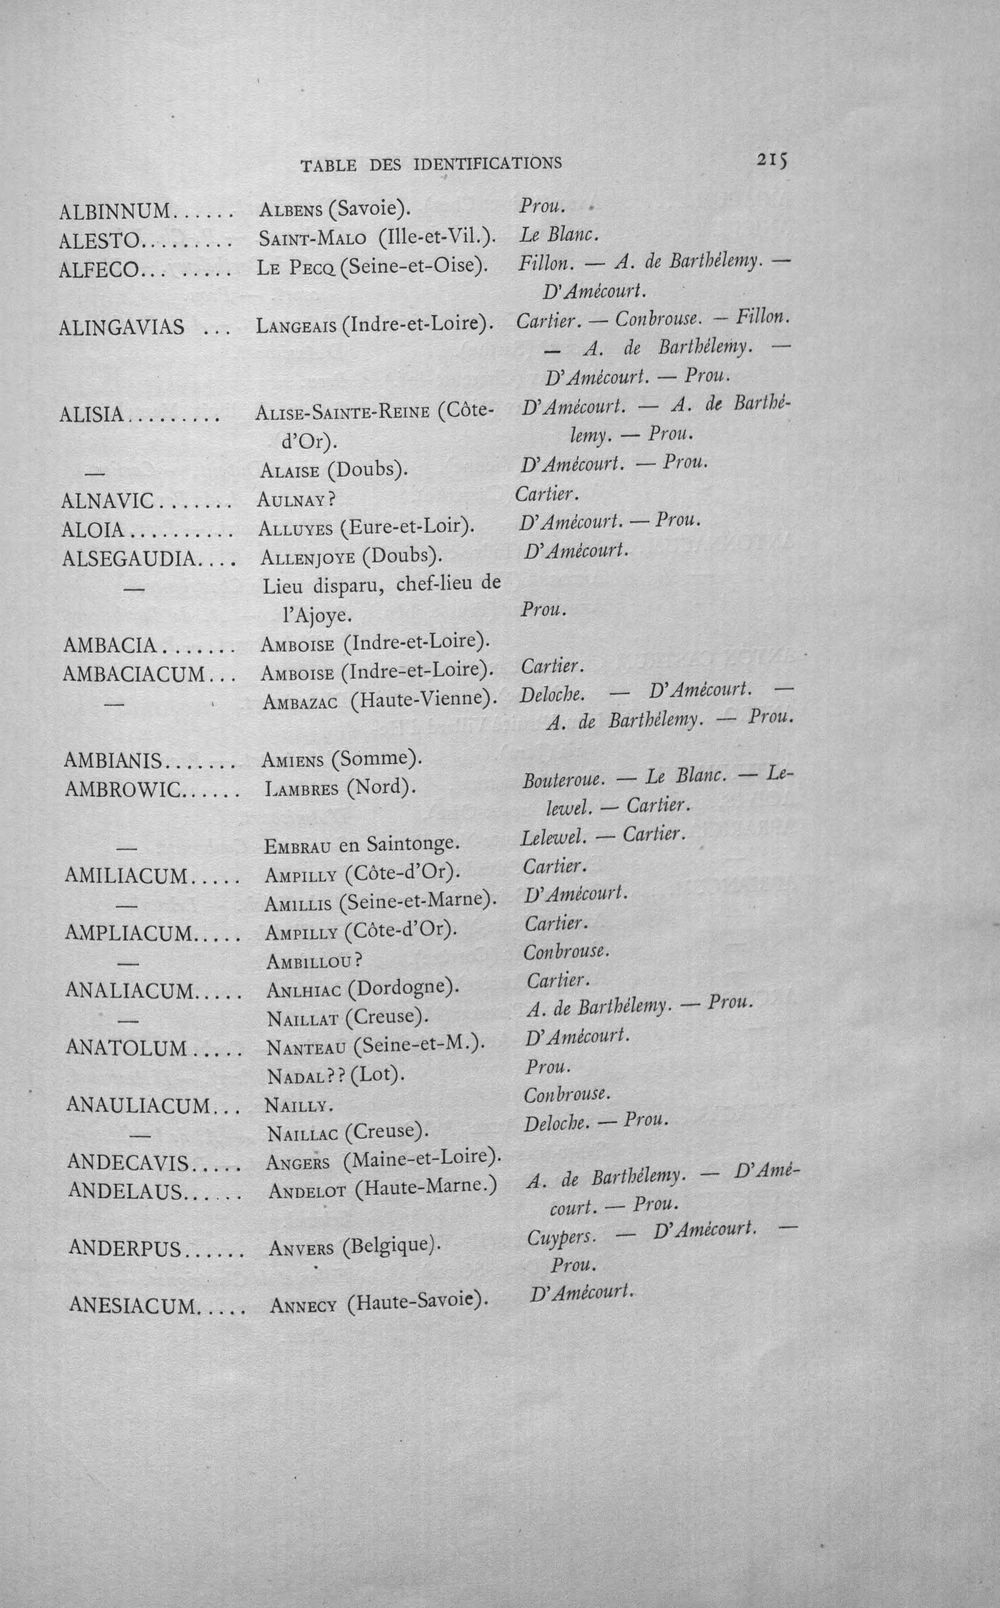 TABLE DES IDENTIFICATIONS 215
ALBINNUM...... ALBENS (Savoie). Prou.
ALESTO......... SAINT-MALO (Ille-et-Vil.). Le Blanc.
ALFECO... ..... LE PECQ (Seine-et-Oise). Fillon. — A. de Barthélemy. —
D'Amécourt.
ALINGAVIAS ... LANGEAIS (Indre-et-Loire). Cartier. — Conbrouse. — Fillon.
— A. de Barthélemy. —
D'Amécourt. — Prou.
ALISIA......... ALISE-SAINTE-REINE (Côte- D'Amécourt. — A. de Barthé-
d'Or). lemy. — Prou.
— ALAISE (Doubs). D'Amécourt. — Prou.
ALNAVIC....... AULNAY? Cartier.
ALOIA.......... ALLUYES (Eure-et-Loir). D'Amécourt. — Prou.
ALSEGAUDIA.... ALLENJOYE (Doubs). D'Amécourt.
— Lieu disparu, chef-lieu de
l'Ajoye. Prou.
AMBACIA....... AMBOISE (Indre-et-Loire).
AMBACIACUM... AMBOISE (Indre-et-Loire). Cartier.
— AMBAZAC (Haute-Vienne). Deloche. — D'Amécourt. —
A. de Barthélemy. — Prou.
AMBIANIS....... AMIENS (Somme).
AMBROWIC...... LAMBRES (Nord). Bouteroue. — Le Blanc. — Le-
lewel. — Cartier.
— EMBRAU en Saintonge. Lelewel. — Cartier.
AMILIACUM..... AMPILLY (Côte-d'Or). Cartier.
— AMILLIS (Seine-et-Marne). D'Amécourt.
AMPLIACUM..... AMPILLY (Côte-d'Or). Cartier.
— AMBILLOU? Conbrouse.
ANALIACUM..... ANLHIAC (Dordogne). Cartier.
— NAILLAT (Creuse). A. de Barthélemy. — Prou.
ANATOLUM ..... NANTEAU (Seine-et-M.). D'Amécourt.
NADAL?? (Lot). Prou.
ANAULIACUM... NAILLY. Conbrouse.
— NAILLAC (Creuse). Deloche. — Prou.
ANDECAVIS..... ANGERS (Maine-et-Loire).
ANDELAUS...... ANDELOT (Haute-Marne.) A. de Barthélemy. — D'Amé-
court. — Prou.
ANDERPUS...... ANVERS (Belgique). Cuypers. — D'Amécourt. —
Prou.
ANESIACUM..... ANNECY (Haute-Savoie). D'Amécourt.